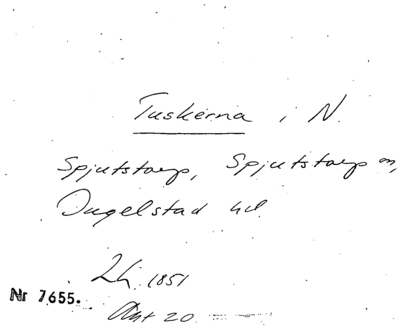 Tuskerna i N.
Spjutstorp, Spjutstorp sn,
Ingelstad hd.
1851
Nr 7655.
Akt 20